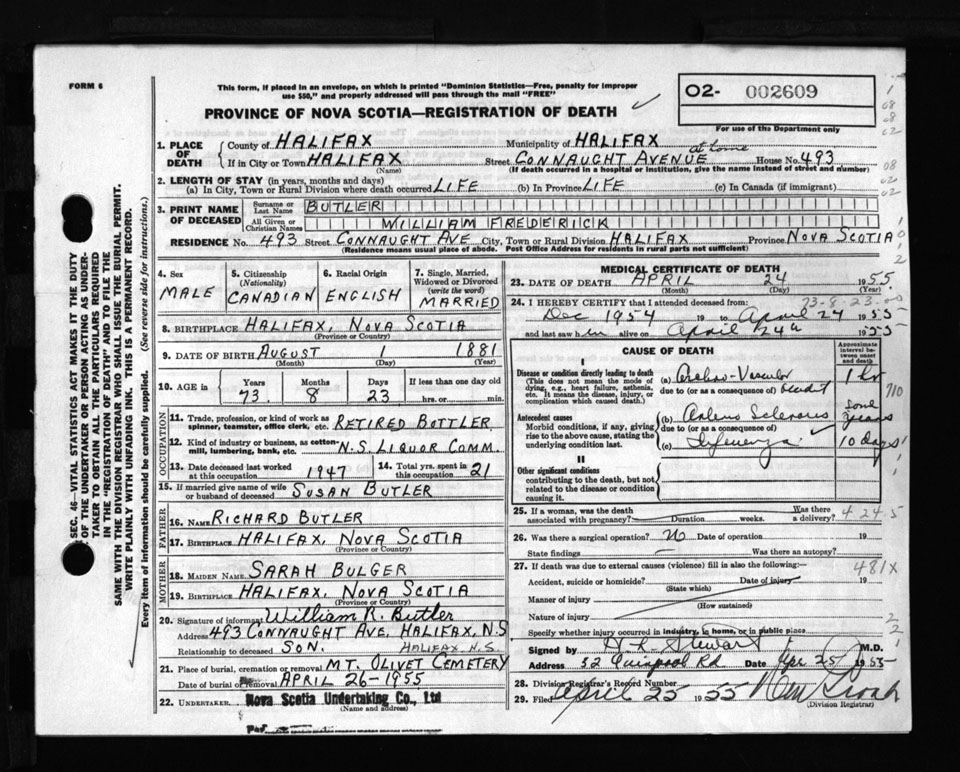 FORM 6
This form, if placed in an envelope, on which is printed "Dominion Statistics—Free, penalty for improper
use $50," and properly addressed will pass through the mail "FREE"
PROVINCE OF NOVA SCOTIA—REGISTRATION OF DEATH
O2- 002609
For use of the Department only
1. PLACE OF DEATH County of HALIFAX Municipality of HALIFAX
at home
If in City or Town HALIFAX Street CONNAUGHT AVENUE House No. 493
(Name) (If death occurred in a hospital or institution, give the name instead of street and number)
2. LENGTH OF STAY (in years, months and days)
(a) In City, Town or Rural Division where death occurred LIFE (b) In Province LIFE (c) In Canada (if immigrant)
3. PRINT NAME OF DECEASED Surname or Last Name BUTLER
All Given or Christian Names WILLIAM FREDERICK
RESIDENCE No. 493 Street CONNAUGHT AVE City, Town or Rural Division HALIFAX Province NOVA SCOTIA
(Residence means usual place of abode. Post Office Address for Residents in rural parts not sufficient)
SEC. 46—VITAL STATISTICS ACT MAKES IT THE DUTY
OF THE UNDERTAKER OR PERSON ACTING AS UNDER-
TAKER TO OBTAIN ALL THE PARTICULARS REQUIRED
IN THE "REGISTRATION OF DEATH" AND TO FILE THE
SAME WITH THE DIVISION REGISTRAR WHO SHALL ISSUE THE BURIAL PERMIT.
WRITE PLAINLY WITH UNFADING INK. THIS IS A PERMANENT RECORD.
Every item of information should be carefully supplied. (See reverse side for instructions.)
4. Sex MALE
5. Citizenship (Nationality) CANADIAN
6. Racial Origin ENGLISH
7. Single, Married, Widowed or Divorced (write the word) MARRIED
8. BIRTHPLACE HALIFAX, NOVA SCOTIA
(Province or Country)
9. DATE OF BIRTH AUGUST 1 1881
(Month) (Day) (Year)
10. AGE in Years 73 Months 8 Days 23 If less than one day old hrs. or min.
OCCUPATION
11. Trade, profession, or kind of work as
spinner, teamster, office clerk, etc. RETIRED BOTTLER
12. Kind of industry or business, as cotton-
mill, lumbering, bank, etc. N.S. LIQUOR COMM.
13. Date deceased last worked at this occupation 1947 14. Total yrs. spent in this occupation 21
15. If married give name of wife
or husband of deceased SUSAN BUTLER
FATHER
16. NAME RICHARD BUTLER
17. BIRTHPLACE HALIFAX, NOVA SCOTIA
(Province or Country)
MOTHER
18. MAIDEN NAME SARAH BULGER
19. BIRTHPLACE HALIFAX, NOVA SCOTIA
(Province or Country)
20. Signature of informant William R. Butler
Address 493 CONNAUGHT AVE, HALIFAX, N.S
Relationship to deceased SON. HALIFAX N.S.
21. Place of burial, cremation or removal MT. OLIVET CEMETERY
Date of burial or removal APRIL 26-1955
22. UNDERTAKER Nova Scotia Undertaking Co., Ltd
(Name and address)
MEDICAL CERTIFICATE OF DEATH
23. DATE OF DEATH APRIL 24 1955
(Month) (Day) (Year)
73-8-23-00
24. I HEREBY CERTIFY that I attended deceased from:
Dec 1954 19 to April 24 1955
and last saw him alive on April 24th 1955
CAUSE OF DEATH
Approximate interval between onset and death
I
Disease or condition directly leading to death
(This does not mean the mode of
dying, e.g., heart failure, asthenia,
etc. It means the disease, injury, or
complication which caused death.)
(a) Cerebro-Vascular 1 hr
due to (or as a consequence of) accident
Antecedent causes
Morbid conditions, if any, giving
rise to the above cause, stating the
underlying condition last.
(b) Arterio Sclerosis some years
due to (or as a consequence of)
(c) Influenza 10 days
II
Other significant conditions
contributing to the death, but not
related to the disease or condition
causing it.
25. If a woman, was the death
associated with pregnancy? Duration weeks. Was there a delivery?
424-5
26. Was there a surgical operation? No Date of operation 19
State findings — Was there an autopsy?
27. If death was due to external causes (violence) fill in also the following:—
481X
Accident, suicide or homicide? Date of injury 19
(State which)
Manner of injury
(How sustained)
Nature of injury
Specify whether injury occurred in industry, in home, or in public place
Signed by H L Stewart M.D.
Address 52 Quinpool Rd Date Apr 25 1955
28. Division Registrar's Record Number
29. Filed April 25 1955
(Division Registrar)